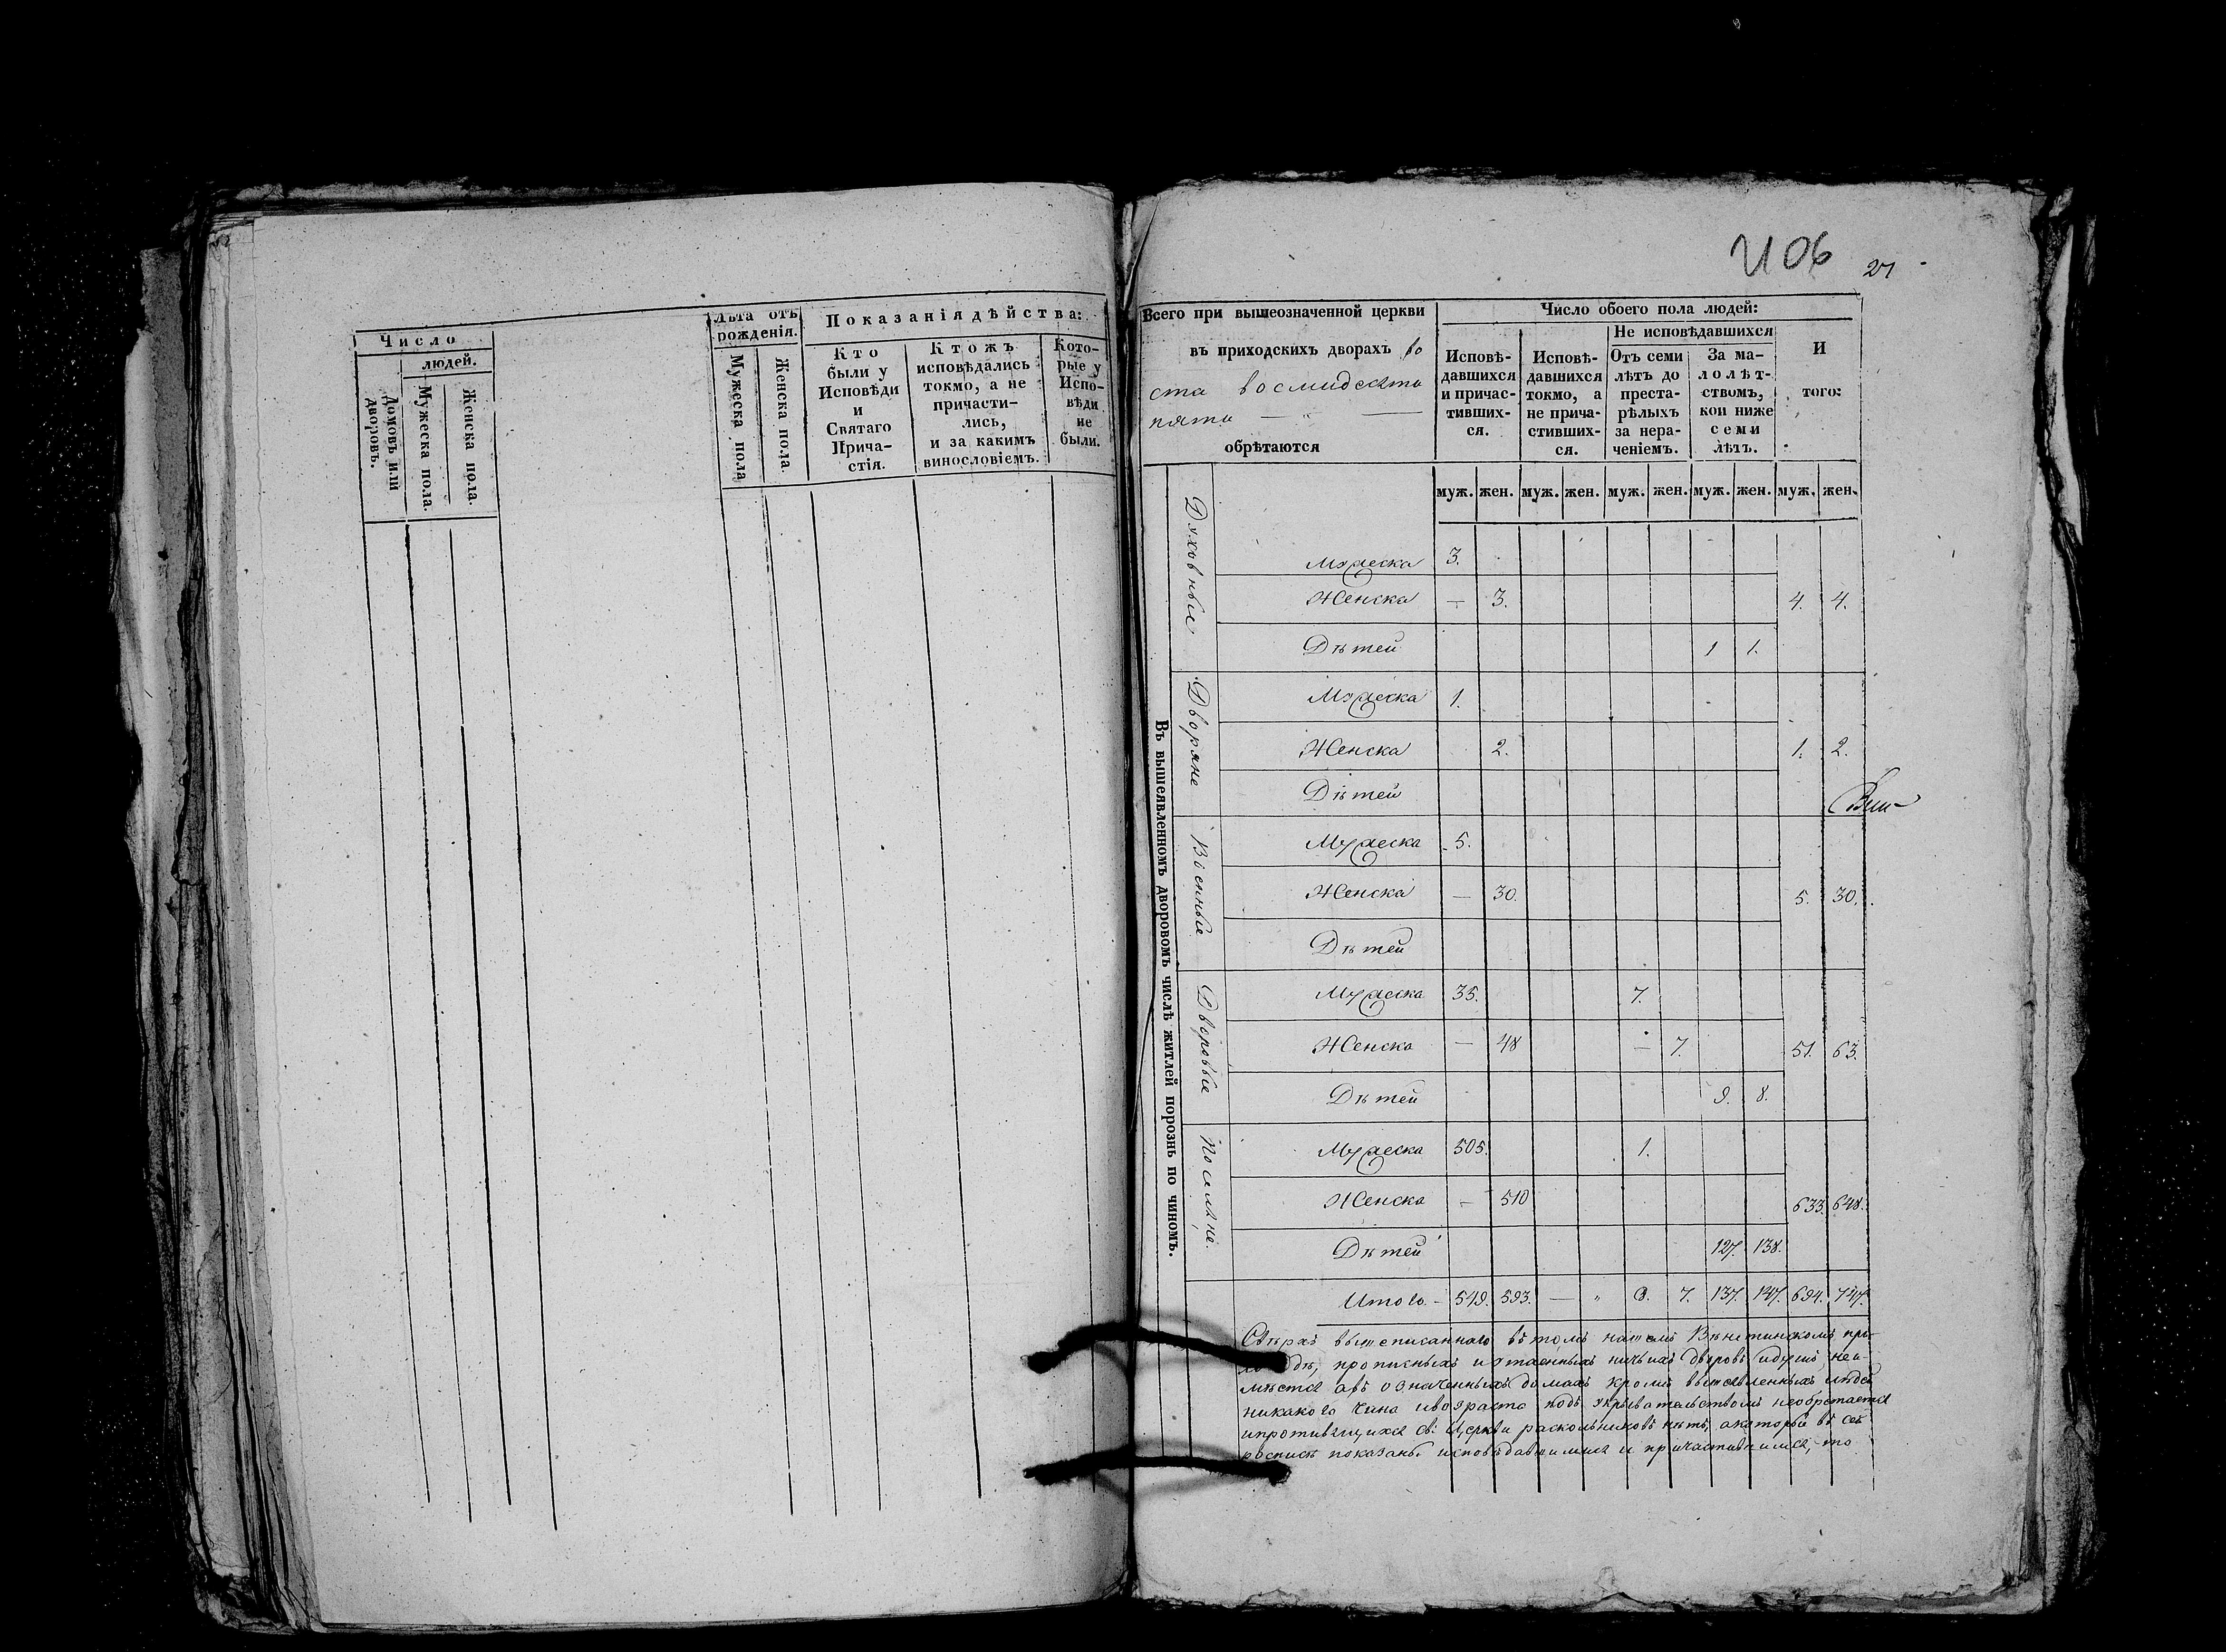 Число
людей.
Домовъ или дворовъ.
Мужеска пола.
Женска пола.
Лѣта отъ рожденія.
Мужеска пола
Женска пола.
Показанія дѣйства:
Кто были у Исповѣди и Святаго Прича-стія.
Ктожъ исповѣдались токмо, а не причасти-лись, и за какимъ винословіемъ.
Кото-рые у Испо-вѣди не были.
406
21
Всего при вышеозначенной церкви
въ приходскихъ дворахъ во
ста восмидесяти
пяти — —
обрѣтаются
Число обоего пола людей:
Исповѣ-давшихся и причас-тивших-ся.
Исповѣ-давшихся токмо, а не прича-стивших-ся.
Не исповѣдавшихся
Отъ семи лѣтъ до преста-рѣлыхъ за нера-ченіемъ.
За ма-лолѣт-ствомъ, кои ниже семи лѣтъ.
И того:
муж. жен. муж. жен. муж. жен. муж. жен. муж. жен.
Въ вышеявленномъ дворовомъ числѣ житлей порознь по чиномъ.
Духовные
Мужеска 3.
Женска — 3. 4. 4.
Дѣтей 1 1.
Дворяне
Мужеска 1.
Женска 2. 1. 2.
Дѣтей
Военные
Мужеска 5.
Женска — 30. 5. 30.
Дѣтей
Дворовые
Мужеска 35. 7.
Женска — 48 — 7. 51. 63.
Дѣтей 9. 8.
Поселяне.
Мужеска 505. 1.
Женска — 510 633. 648.
Дѣтей 127. 138.
Итого. — 549. 593. — " 8. 7. 137. 147. 694. 747.
Сверхъ вышеписаннаго въ томъ нашемъ при-
ходѣ, прописныхъ и утаенныхъ ничьихъ дворовъ и душъ неи-
мѣется а въ означенныхъ домахъ кромѣ вышеявленныхъ людей
никакого чина и возраста подъ укрывательствомъ необрѣтается
и противящихся св: Церкви раскольниковъ нѣтъ, а которые въ сей
росписи показаны исповѣдавшимися и причастившимися, то